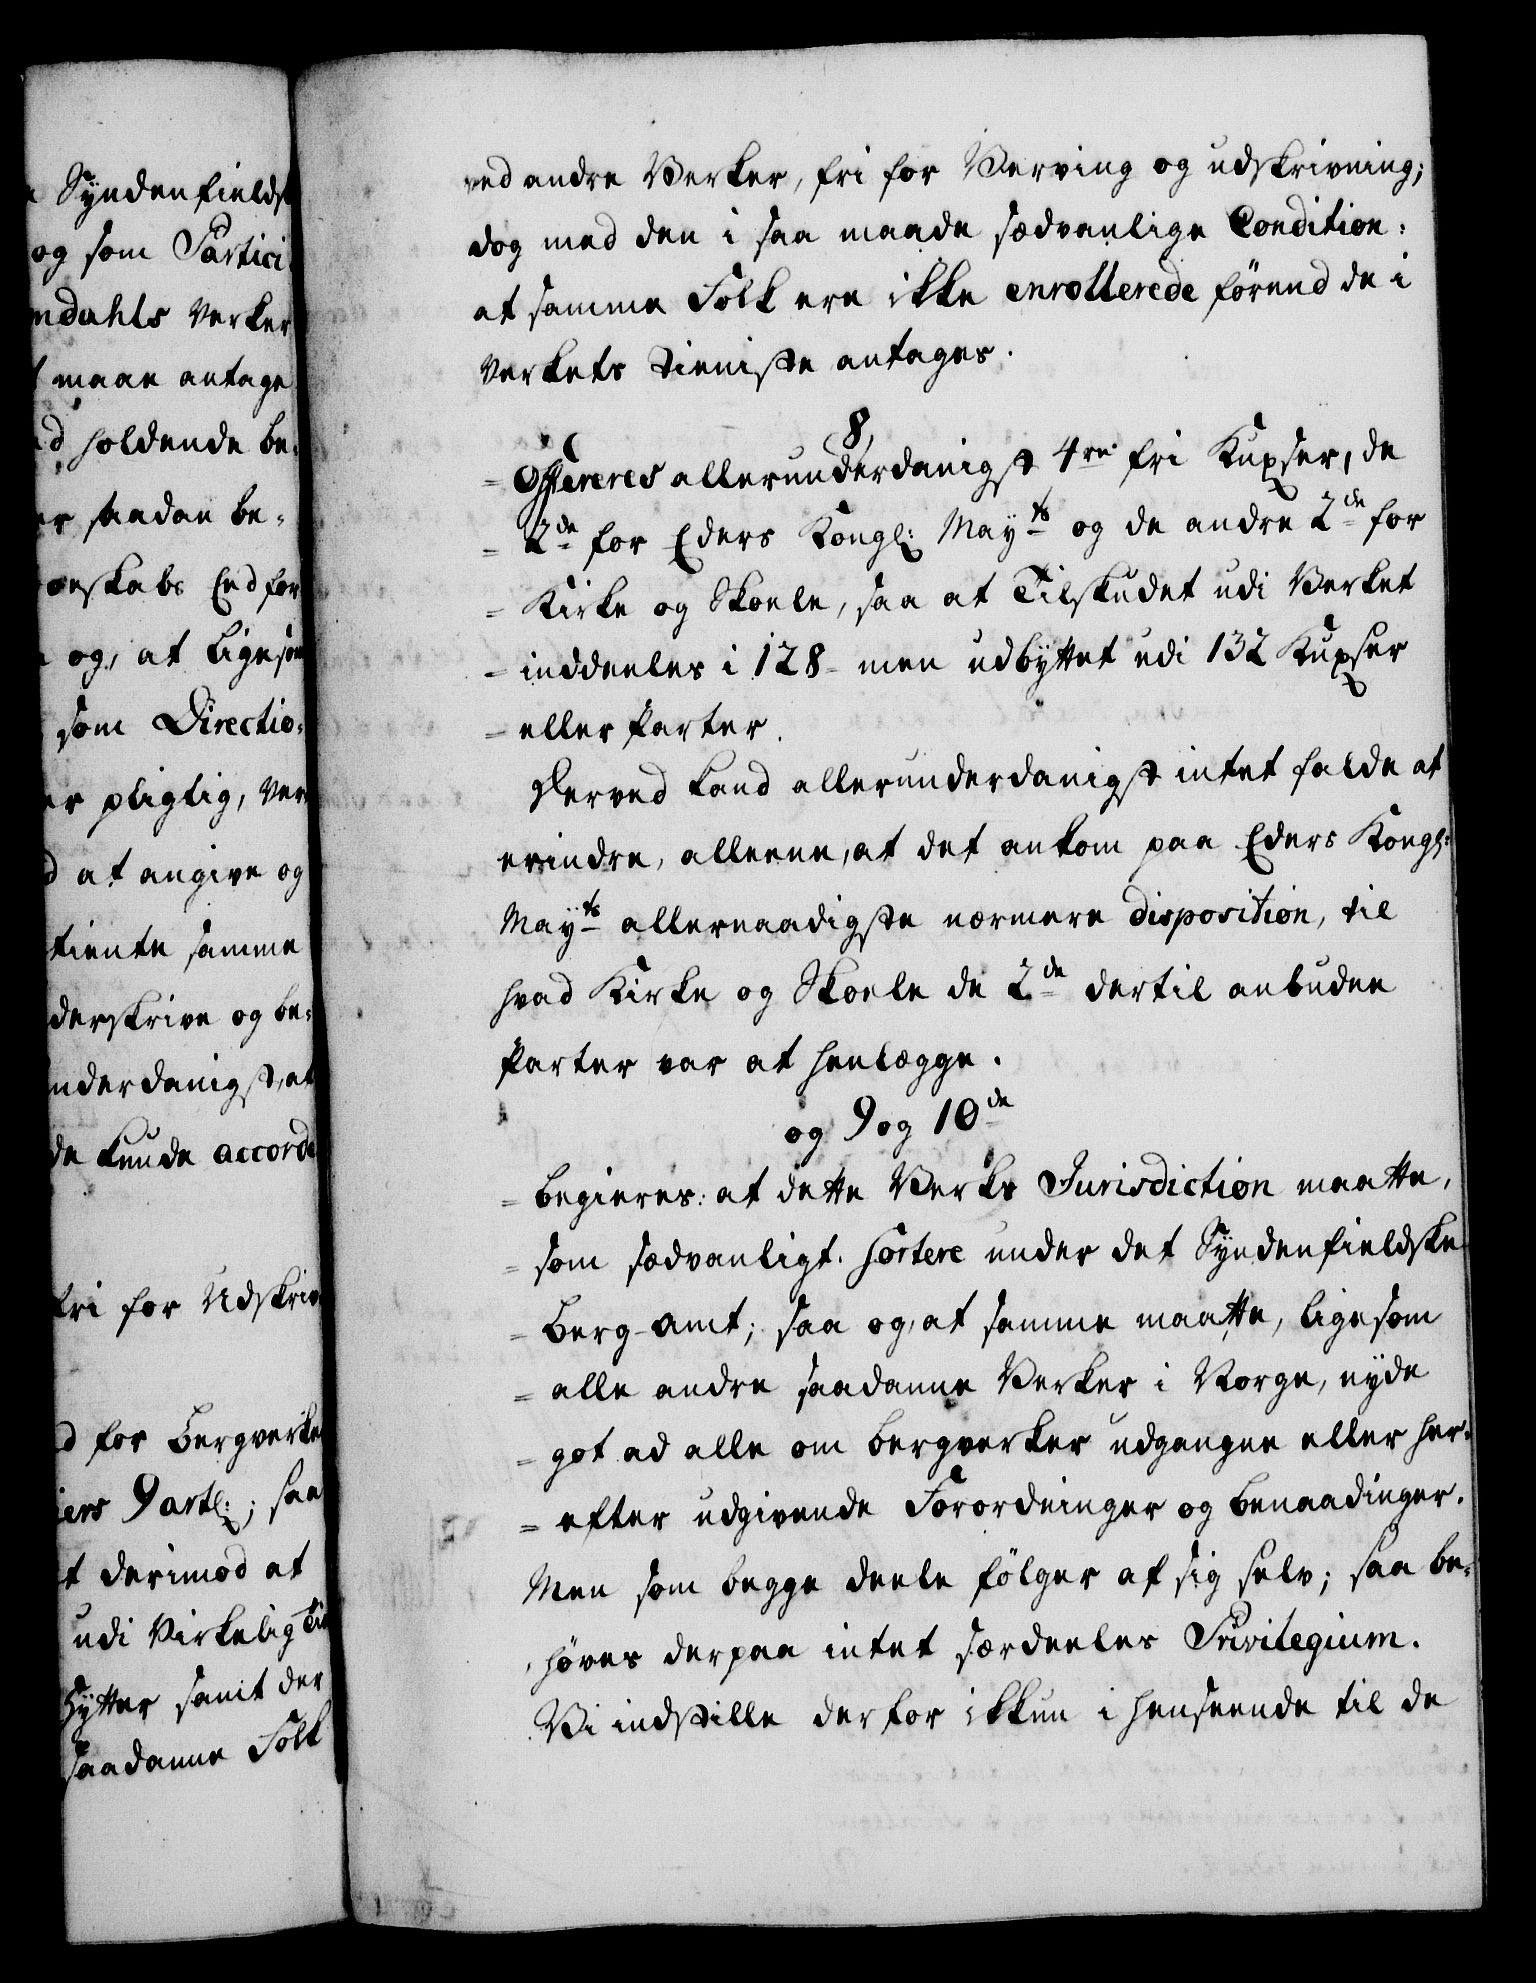 Syndenfields
og som Partici
ndahls Verker
maae antage
d holdende be-
er saadan be-
onskabs Eed for
og, at ligesom
som Directio-
er pligtig, ver
d at angive og
tiente samme
derskrive og be-
nderdanigst, at
de kunde accorde
fri for Udskriv
d for Bergverke
iers 9 artl:; saa
t derimod at
udi Virkelig Tie
Hytter samt der
saadanne Folk
ved andre Verker, fri for Verving og udskrivning;
dog med den i saa maade sædvanlige Condition:
at samme Folk ere ikke enrollerede förend de i
Verkets Tieniste antages.
8,
= Offereres allerunderdanigst 4re fri Kuxser, de
= 2de for Eders Kongl: Mayts og de andre 2de for
= Kirke og Skoele, saa at Tilskudet udi Verket
= inddeeles i 128 - men udbyttet udi 132 Kuxser
= eller Parter.
Herved kand allerunderdanigst intet falde at
erindre, alleene, at det ankom paa Eders Kongl:
Mayts allernaadigste nærmere disposition, til
hvad Kirke og Skoele de 2de dertil anbudne
Parter var at henlægge.
og 9 og 10de
= begieres: at dette Verks Jurisdiction maatte,
= som sædvanligt. Sortere under det Syndenfieldske
= Berg-Amt; saa og, at samme maatte, ligesom
= alle andre saadanne Verker i Norge, nyde
= got ad alle om bergverker udgangne eller her-
= efter udgivende Forordninger og benaadinger.
Men som begge deele fölger af sig selv; saa be-
höves derpaa intet særdeeles Privilegium.
Vi indstille derfor ikkun i henseende til de